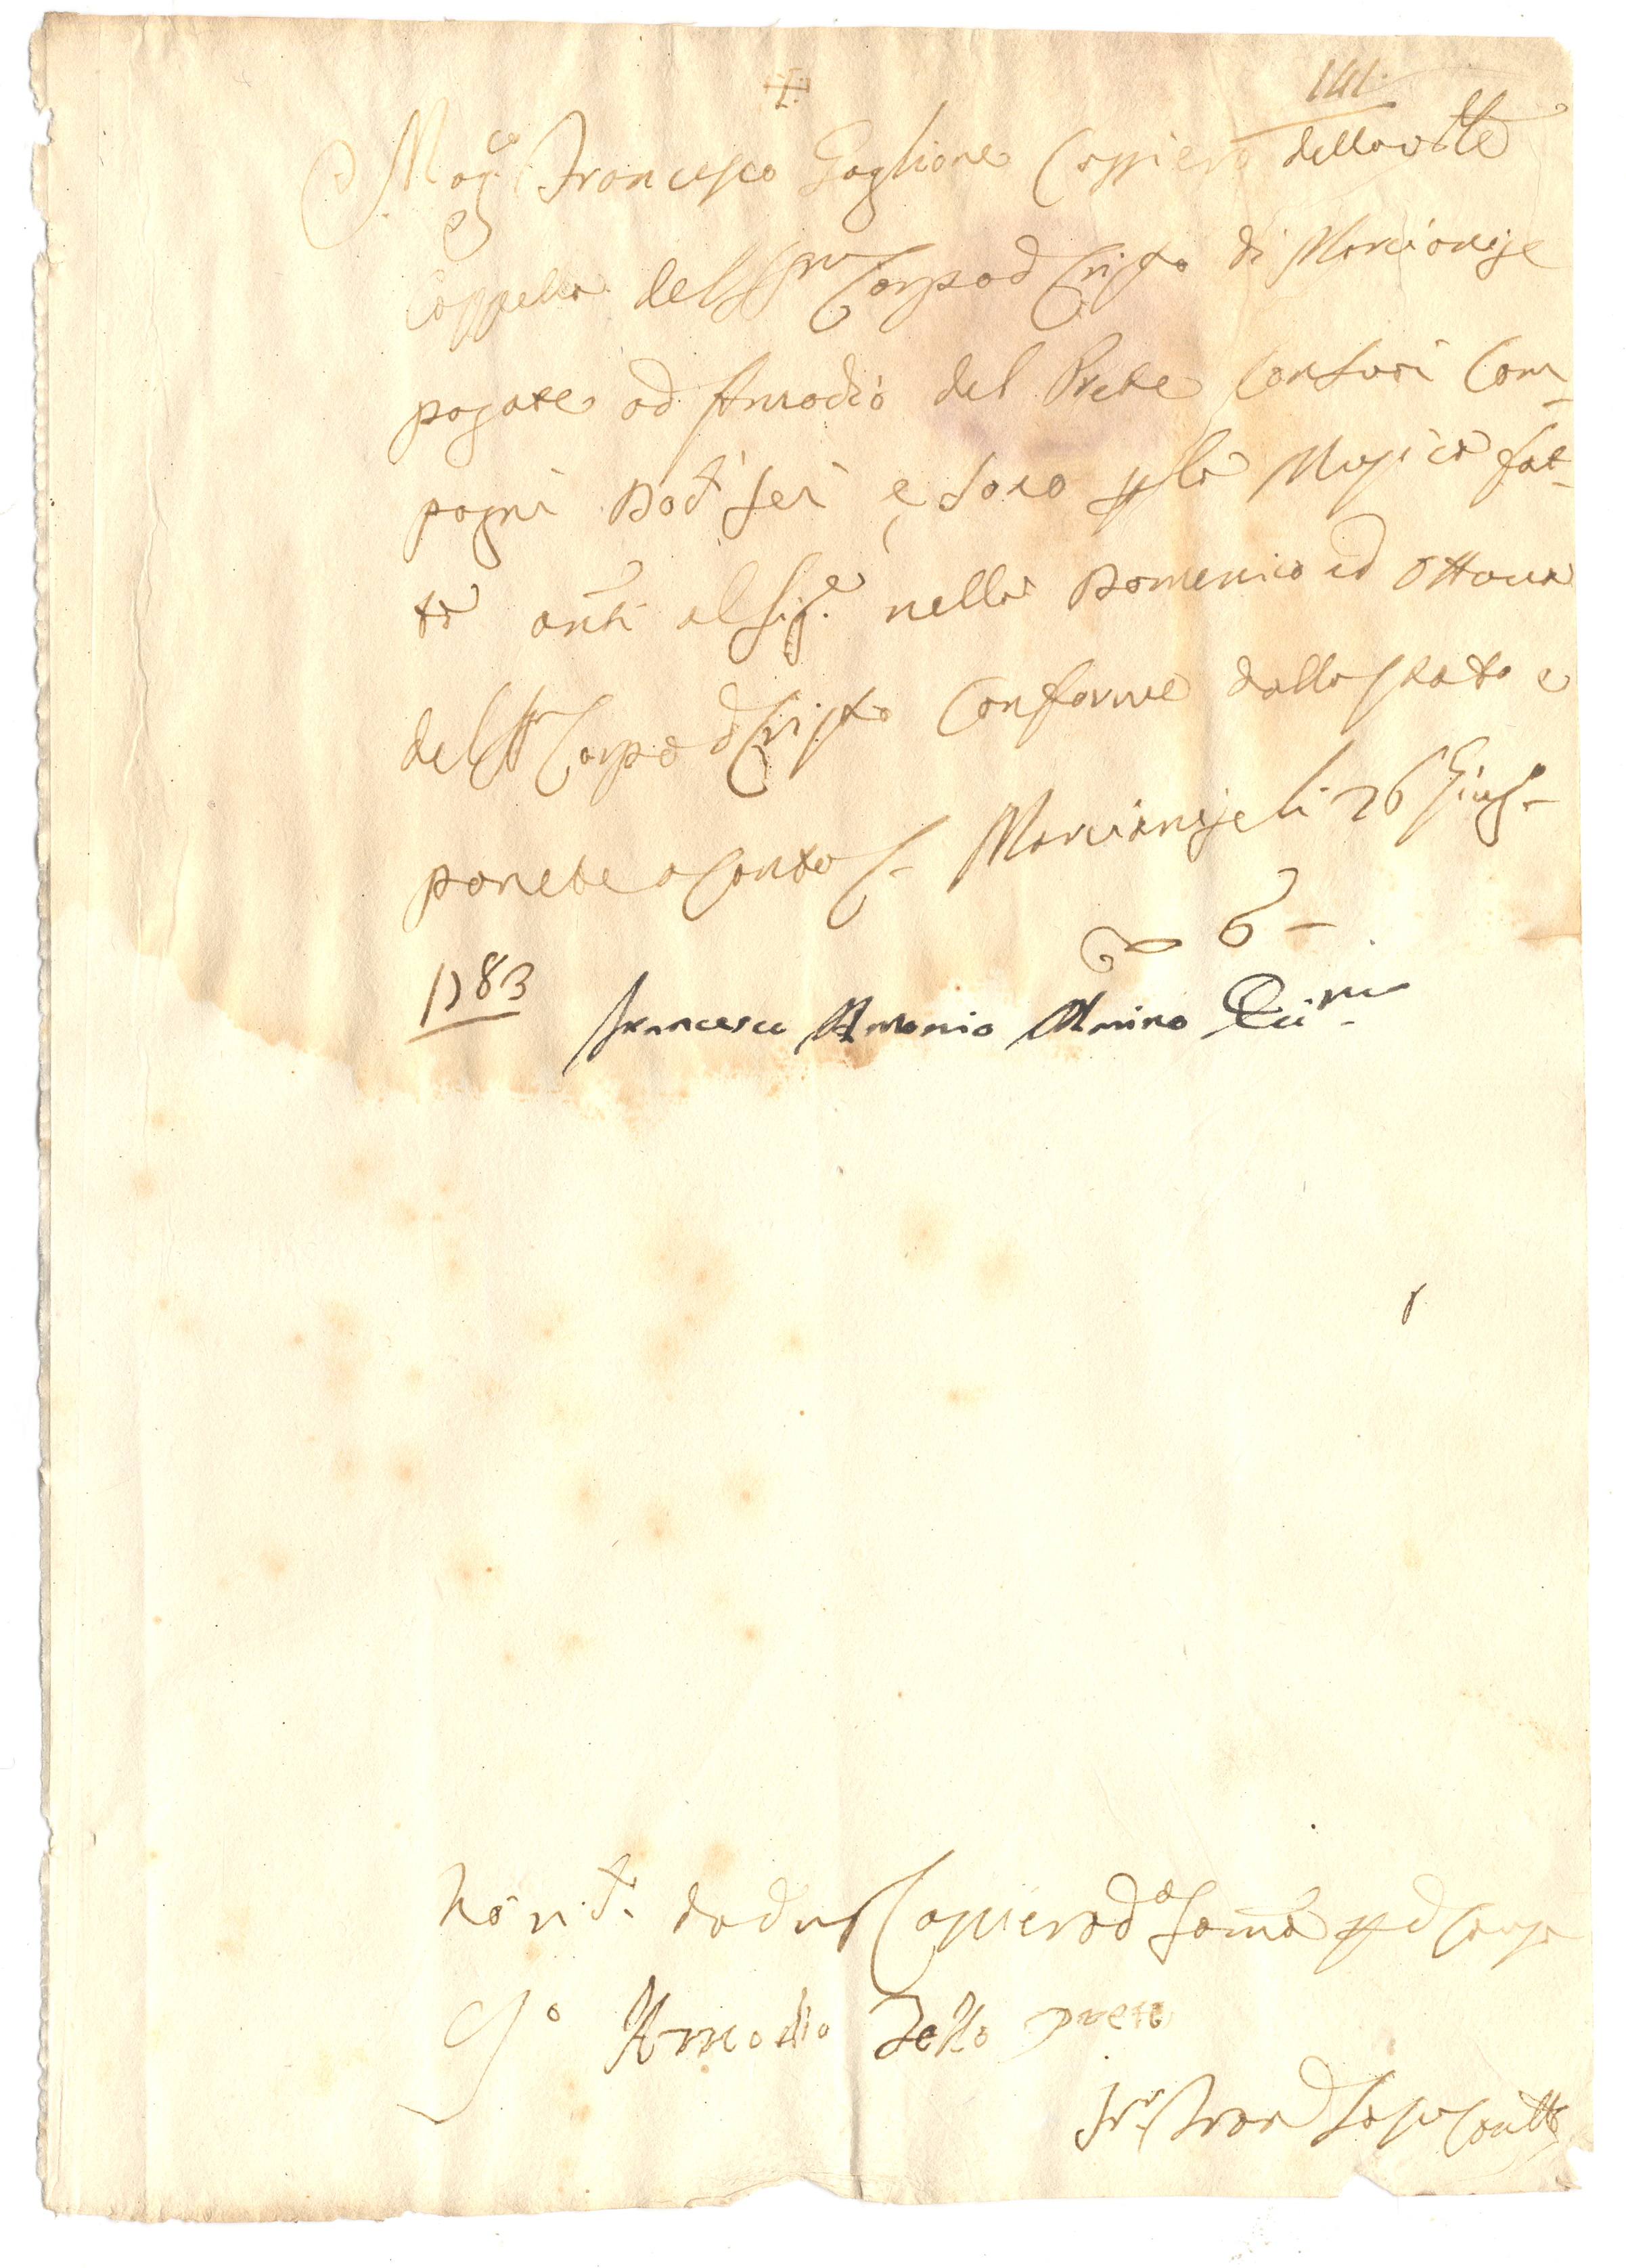 141.
Mag.co Francesco Gaglione Cassiero della ven.le
Cappella del SS.mo Corpo di Cristo di Marcianise
pagate ad Amodio del Prete con suoi Com-
pagni Docti sei e sono p la Musica fat-
ta anti al Sig.e nella Domenica ed Ottava
del SS. Corpo d Cristo conforme dallo stato e
ponete a conto Marcianise li 26 Giug.
6 -
1783 Francesco Antonio Marino
Ho ric. da d Cassiero d somma p d causa
Io Amodio Dello Prete